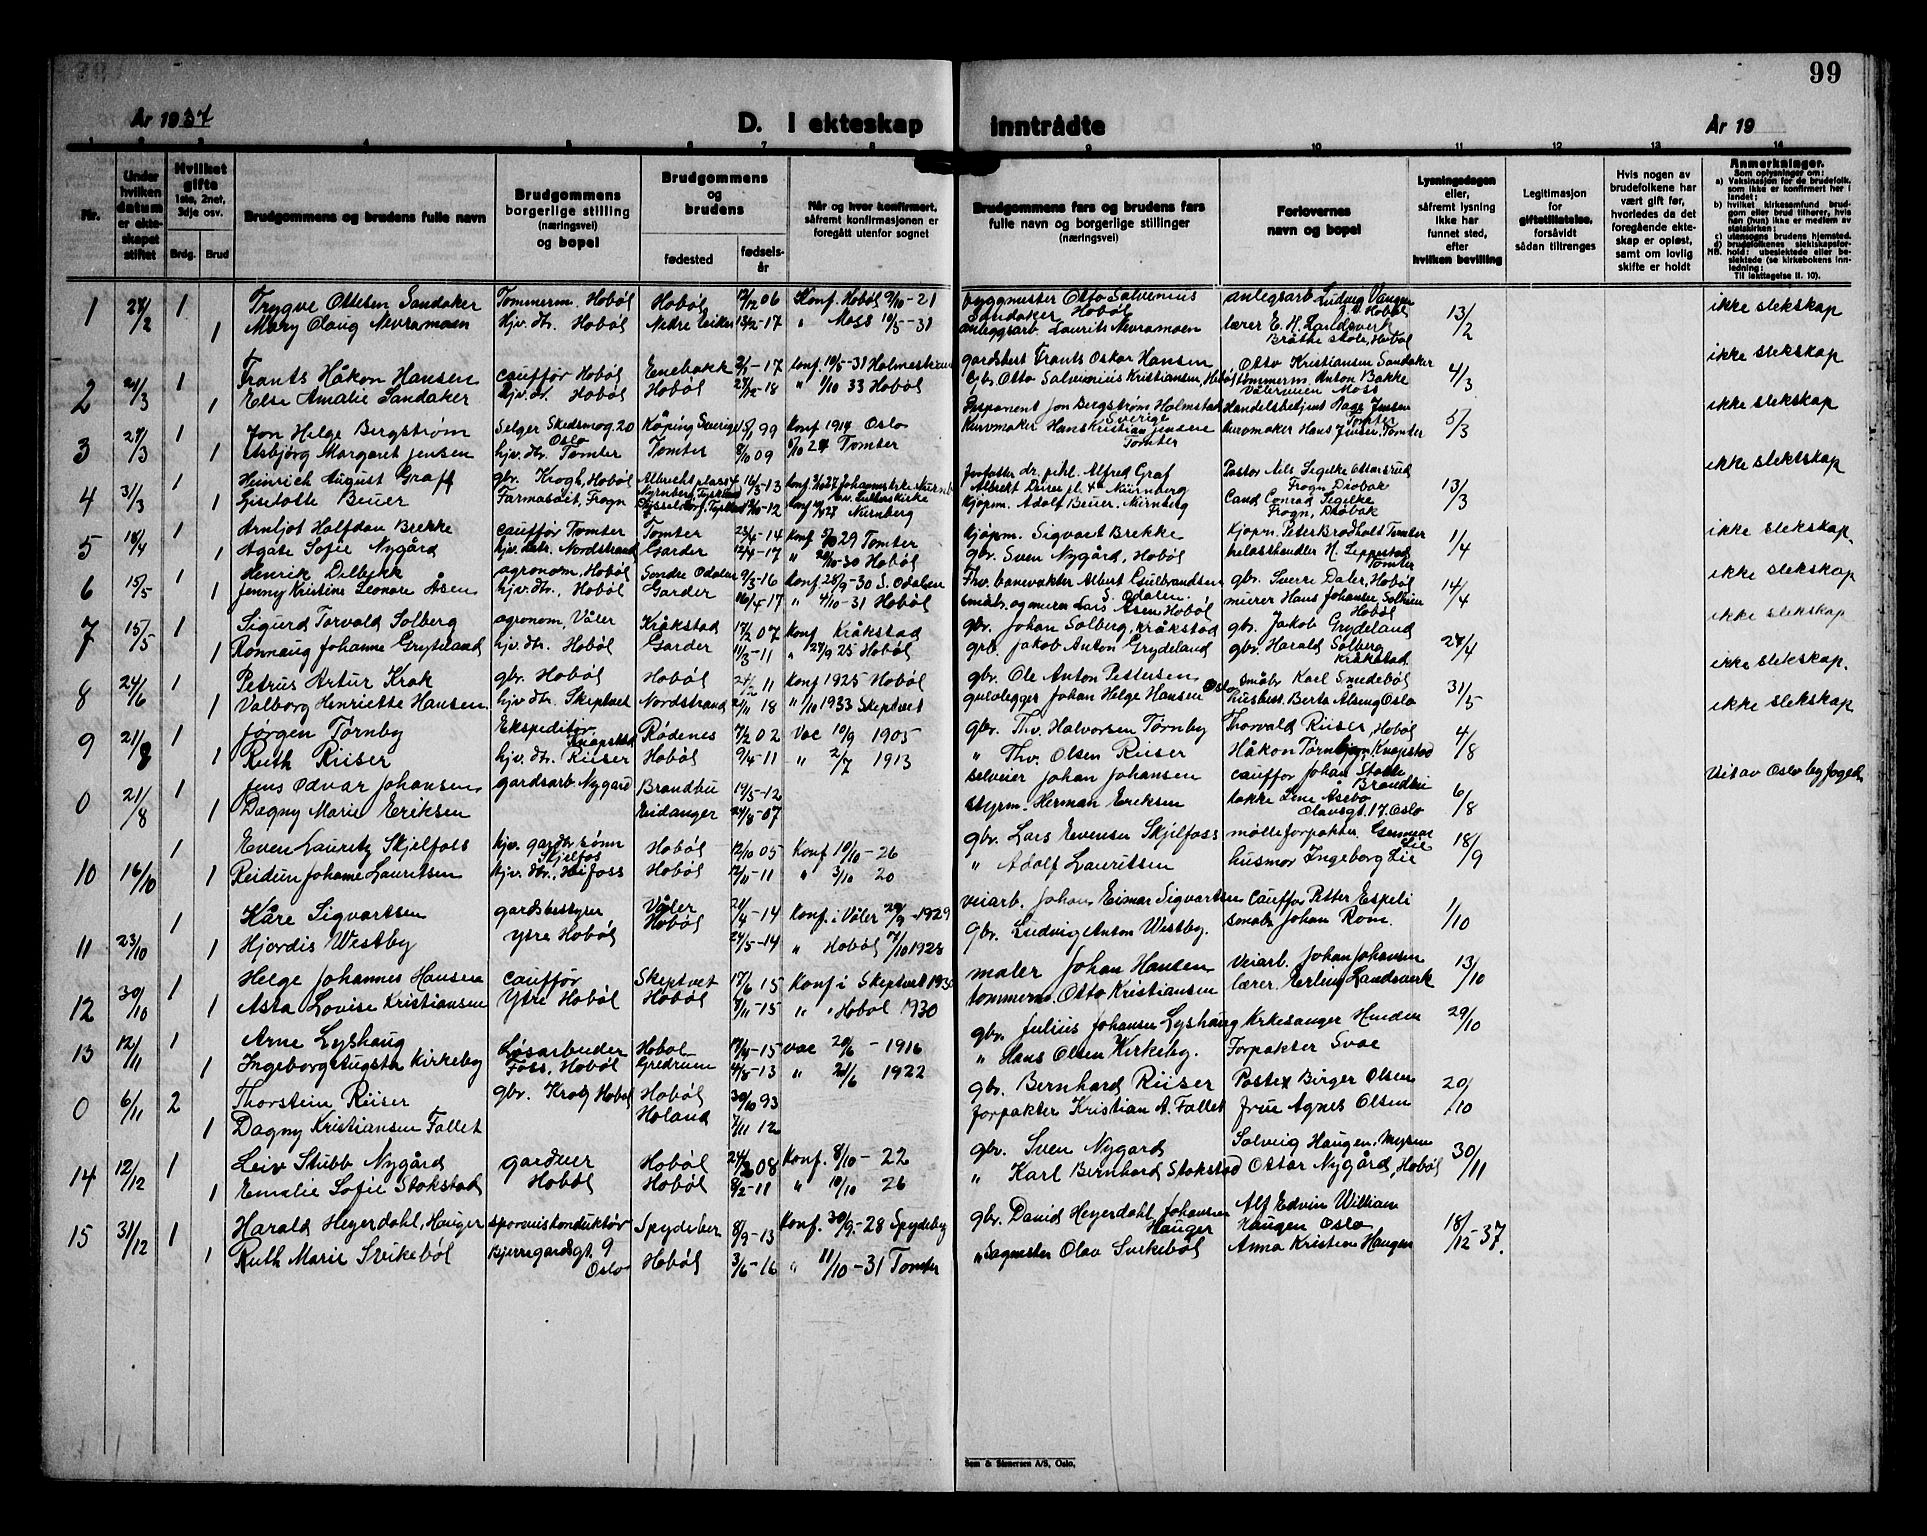 99
År 1937
D. I ekteskap inntrådte
År 19
1 2 3 4 5 6 7 8 9 10 11 12 13 14
Nr.
Under hvilken datum er ekteskapet stiftet
Hvilket gifte 1ste, 2net, 3dje osv.
Brdg. Brud
Brudgommens og brudens fulle navn
Brudgommens borgerlige stilling (næringsvei) og bopel
Brudgommens og brudens
fødested
fødselsår
Når og hvor konfirmert, såfremt konfirmasjonen er foregått utenfor sognet
Brudgommens fars og brudens fars fulle navn og borgerlige stillinger (næringsvei)
Forlovernes navn og bopel
Lysningsdagen eller, såfremt lysning ikke har funnet sted, efter hvilken bevilling
Legitimasjon for giftetillatelse, forsåvidt sådan tiltrenges
Hvis nogen av brudefolkene har vært gift før, hvorledes da det foregående ekteskap er opløst, samt om lovlig skifte er holdt
Anmerkninger.
Som oplysninger om:
a) Vaksinasjon for de brudefolk, som ikke er konfirmert her i landet:
b) hvilket kirkesamfund brudgom eller brud tilhører, hvis han (hun) ikke er medlem av statskirken:
c) utensogns brudens hjemsted.
d) brudefolkenes slektskapsforhold: ubeslektede eller beslektede (se kirkebokens innledning:
NB. Til iakttagelse II. 10).
1 27/2 1 Trygve Ottesen Sandaker Tømmerm. Hobøl Hobøl 12/12 06 Konf. Hobøl 9/10-21 byggmester Otto Salvenius Sandaker Hobøl anlegsarb Ludvig Vangen Hobøl 13/2 ikke slekskap
1 Mary Olaug Nevramoen hjv. dtr. Hobøl Nedre Eiker 13/2-17 " Moss 10/5-31 anleggsarb. Laurits Nevramoen lærer E. H. Landsverk Bråthe skole, Hobøl
2 21/3 1 Frants Håkon Hansen cauffør Hobøl Enebakk 2/1-17 konf. 10/5-31 Holmestrand gardsbest Frants Oskar Hansen Otto Kristiansen Sandaker 4/3 ikke slekskap
1 Else Amalie Sandaker hjv. dtr. Hobøl Hobøl 27/12-18 " 1/10 33 Hobøl Gbr. Otto Salvenius Kristiansen, Hobøl tømmerm. Anton Bakke Vålerveien Moss
3 27/3 1 Jon Helge Bergstrøm Selger Skedsmog. 20 Oslo Køping Sverige 15/1 99 Konf 1914 Oslo Disponent Jon Bergstrøm Holmstad Sverige Handelsbetjent Aage Jensen Tomter 5/3 ikke slekskap
1 Asbjørg Margaret Jensen hjv. dtr. Tomter Tomter 8/10 09 5/10 24 Tomter Kurvmaker Hans Kristian Jensen Tomter kurvmaker Hans Jensen, Tomter
4 31/3 1 Heinrich August Graff gbr. Krogh, Hobøl Albrechtsplass 4 Nyrnberg, Tyskland 16/3-13 Konf. 3/4 27 Johanneskirke Nürnb. forfatter dr. phil. Alfred Graf Albrekt Dürer pl. 4 Nürnberg Pastor Nils Segelke Ottarsrud Frogn Drøbak 13/3 ikke slektskap
1 Giselotte Beuer Farmasøit, Frogn Dysseldorf, Tyskland 18/10-12 Konf 27 ev. Lutherskirke Nürnberg Kjøpm. Adolf Beuer, Nürnberg Cand Conrad Segelke Frogn, Drøbak
5 18/4 1 Arnljot Halfdan Brekke cauffør Tomter Tomter 23/4-14 Konf 5/10 29 Tomter kjøpm. Sigvart Brekke Kjøpm. Peter Bradholt Tomter 1/4 ikke slekskap.
1 Agate Sofie Nygård hjv. dtr. Nordstrand Garder 12/4-17 " 28/10-30 Hobøl gbr. Sven Nygård, Hobøl trelasthandler H. Leppestad Tomter
6 15/5 1 Henrik Dilbekk agronom, Hobøl Søndre Odalen 9/3-16 Konf 28/9-30 S. Odalen Fhv. banevakter Albert Gulbrandsen S. Odalen gbr. Sverre Daler, Hobøl 14/4 ikke slekskap
1 Jenny Kristine Leonore Åsen hjv. dtr. Hobøl Garder 16/4-17 " 4/10-31 Hobøl småbr. og murer Lars Åsen Hobøl murer Hans Johansen Solheim Hobøl
7 15/5 1 Sigurd Torvald Solberg agronom, Våler Kråkstad 17/2 07 Konf Kråkstad gbr. Johan Solberg, Kråkstad gbr. Jakob Grydeland 27/4 ikke slekskap
1 Rønnaug Johanne Grydeland hjv. dtr. Hobøl Garder 11/3-11 " 27/9 25 Hobøl gbr. Jakob Anton Grydeland gbr. Harald Solberg Kråkstad
8 24/6 1 Petrus Artur Krok gbr. Hobøl Hobøl 21/2 11 Konf 1925 Hobøl gbr. Ole Anton Pettersen småbr Karl Smedebøl 31/5 ikke slekskap.
1 Valborg Henriette Hansen hjv dtr. Skiptvet Nordstrand 2/11 18 " 1/10 1933 Skiptvet gulvlegger Johan Helge Hansen Oslo husbest. Berta Alseng Oslo
9 21/8 1 Jørgen Tørnby Ekspeditør Knapstad Rødenes 7/2 02 Vac 10/9 1905 gbr. Thv. Halvorsen Tørnby Thorvald Riiser, Hobøl 4/8 ikke slekskap
1 Ruth Riiser hjv. dtr. Riiser Hobøl 9/4-11 " 2/7 1913 " Thv. Olsen Riiser Håkon Tørnby, Knapstad
0 21/8 1 Jens Odvar Johansen gardsarb Nygård Brandbu 19/5-12 selveier Johan Johansen cauffør Johan Brandbu 6/8 Vit av Oslo byfoged
1 Dagny Marie Eriksen Eidanger 21/8-07 styrm. Herman Eriksen Olavsgt. 17. Oslo
10 16/10 1 Even Lauritz Skjelfoss hjv. gardbr. sønn Skjelfos Hobøl 12/10 05 Konf 10/10-26 gbr. Lars Evensen Skjelfoss mølleforpakter Gunnar Lie 18/9
1 Reidun Johanne Lauritsen hjv. dtr. Høifoss Hobøl 12/11-11 " 3/10 20 " Adolf Lauritsen husmor Ingeborg Lie
11 23/10 1 Kåre Sigvartsen gardsbestyrer Våler 21/4-14 Konf. i Våler 29/9-1929 veiarb. Johan Eimar Sigvartsen Cauffør Petter Espeli 1/10
1 Hjørdis Westby Ytre Hobøl Hobøl 24/5-14 " Hobøl 7/10 1928 gbr. Ludvig Anton Westby. småbr Johan Rom.
12 30/10 1 Helge Johannes Hansen cauffør Skeptvet 17/6 15 Konf i Skeptvet 1930 maler Johan Hansen Veiarb. Johan Johansen 13/10
1 Asta Lovise Kristiansen Ytre Hobøl Hobøl 7/11-15 " " Hobøl 1930 tømmerm. Otto Kristiansen lærer. Erling Landsverk
13 12/11 1 Arne Lyshaug Løsarbeider Hobøl 17/4-15 vac 20/6-1916 gbr. Julius Johansen Lyshaug Kirkesanger 29/10
1 Ingeborg Augsta Kirkeby Foss, Hobøl Gredrum 4/8-13 " 21/6 1922 " Hans Olsen Kirkeby. Forpakter Svae
0 6/11 2 Thorstein Riiser gbr. Krog Hobøl Hobøl 30/10 93 gbr. Bernhard Riiser Postex Birger Olsen 20/10
1 Dagny Kristiansen Fallet Høland 7/11 12 forpakter Kristian A. Fallet frue Agnes Olsen
14 12/12 1 Leiv Stubb Nygård gardeier Hobøl 08 Konf. 8/10-22 gbr. Sven Nygård Solveig Haugen, Mysen 30/11
1 Emalie Sofie Stokstad Hobøl Hobøl 8/2-11 " 10/10 26 " Karl Bernhard Stokstad Ottar Nygård, Hobøl
15 31/12 1 Harald Heyerdahl, Hauger sporveiskonduktør Spydeber 8/9-13 Konf. 30/9-28 Spydeby gbr. David Heyerdahl Johansen Hauger Alf Edvin William Haugen Oslo 18/12-37.
1 Ruth Marie Svikebøl Bjerregaardsgt. 9 Oslo Hobøl 3/6-16 " 11/10-31 Tomter " Sagmester Olav Svikebøl Anna Kristine Haugen
Sem & Stenersen A/S, Oslo.